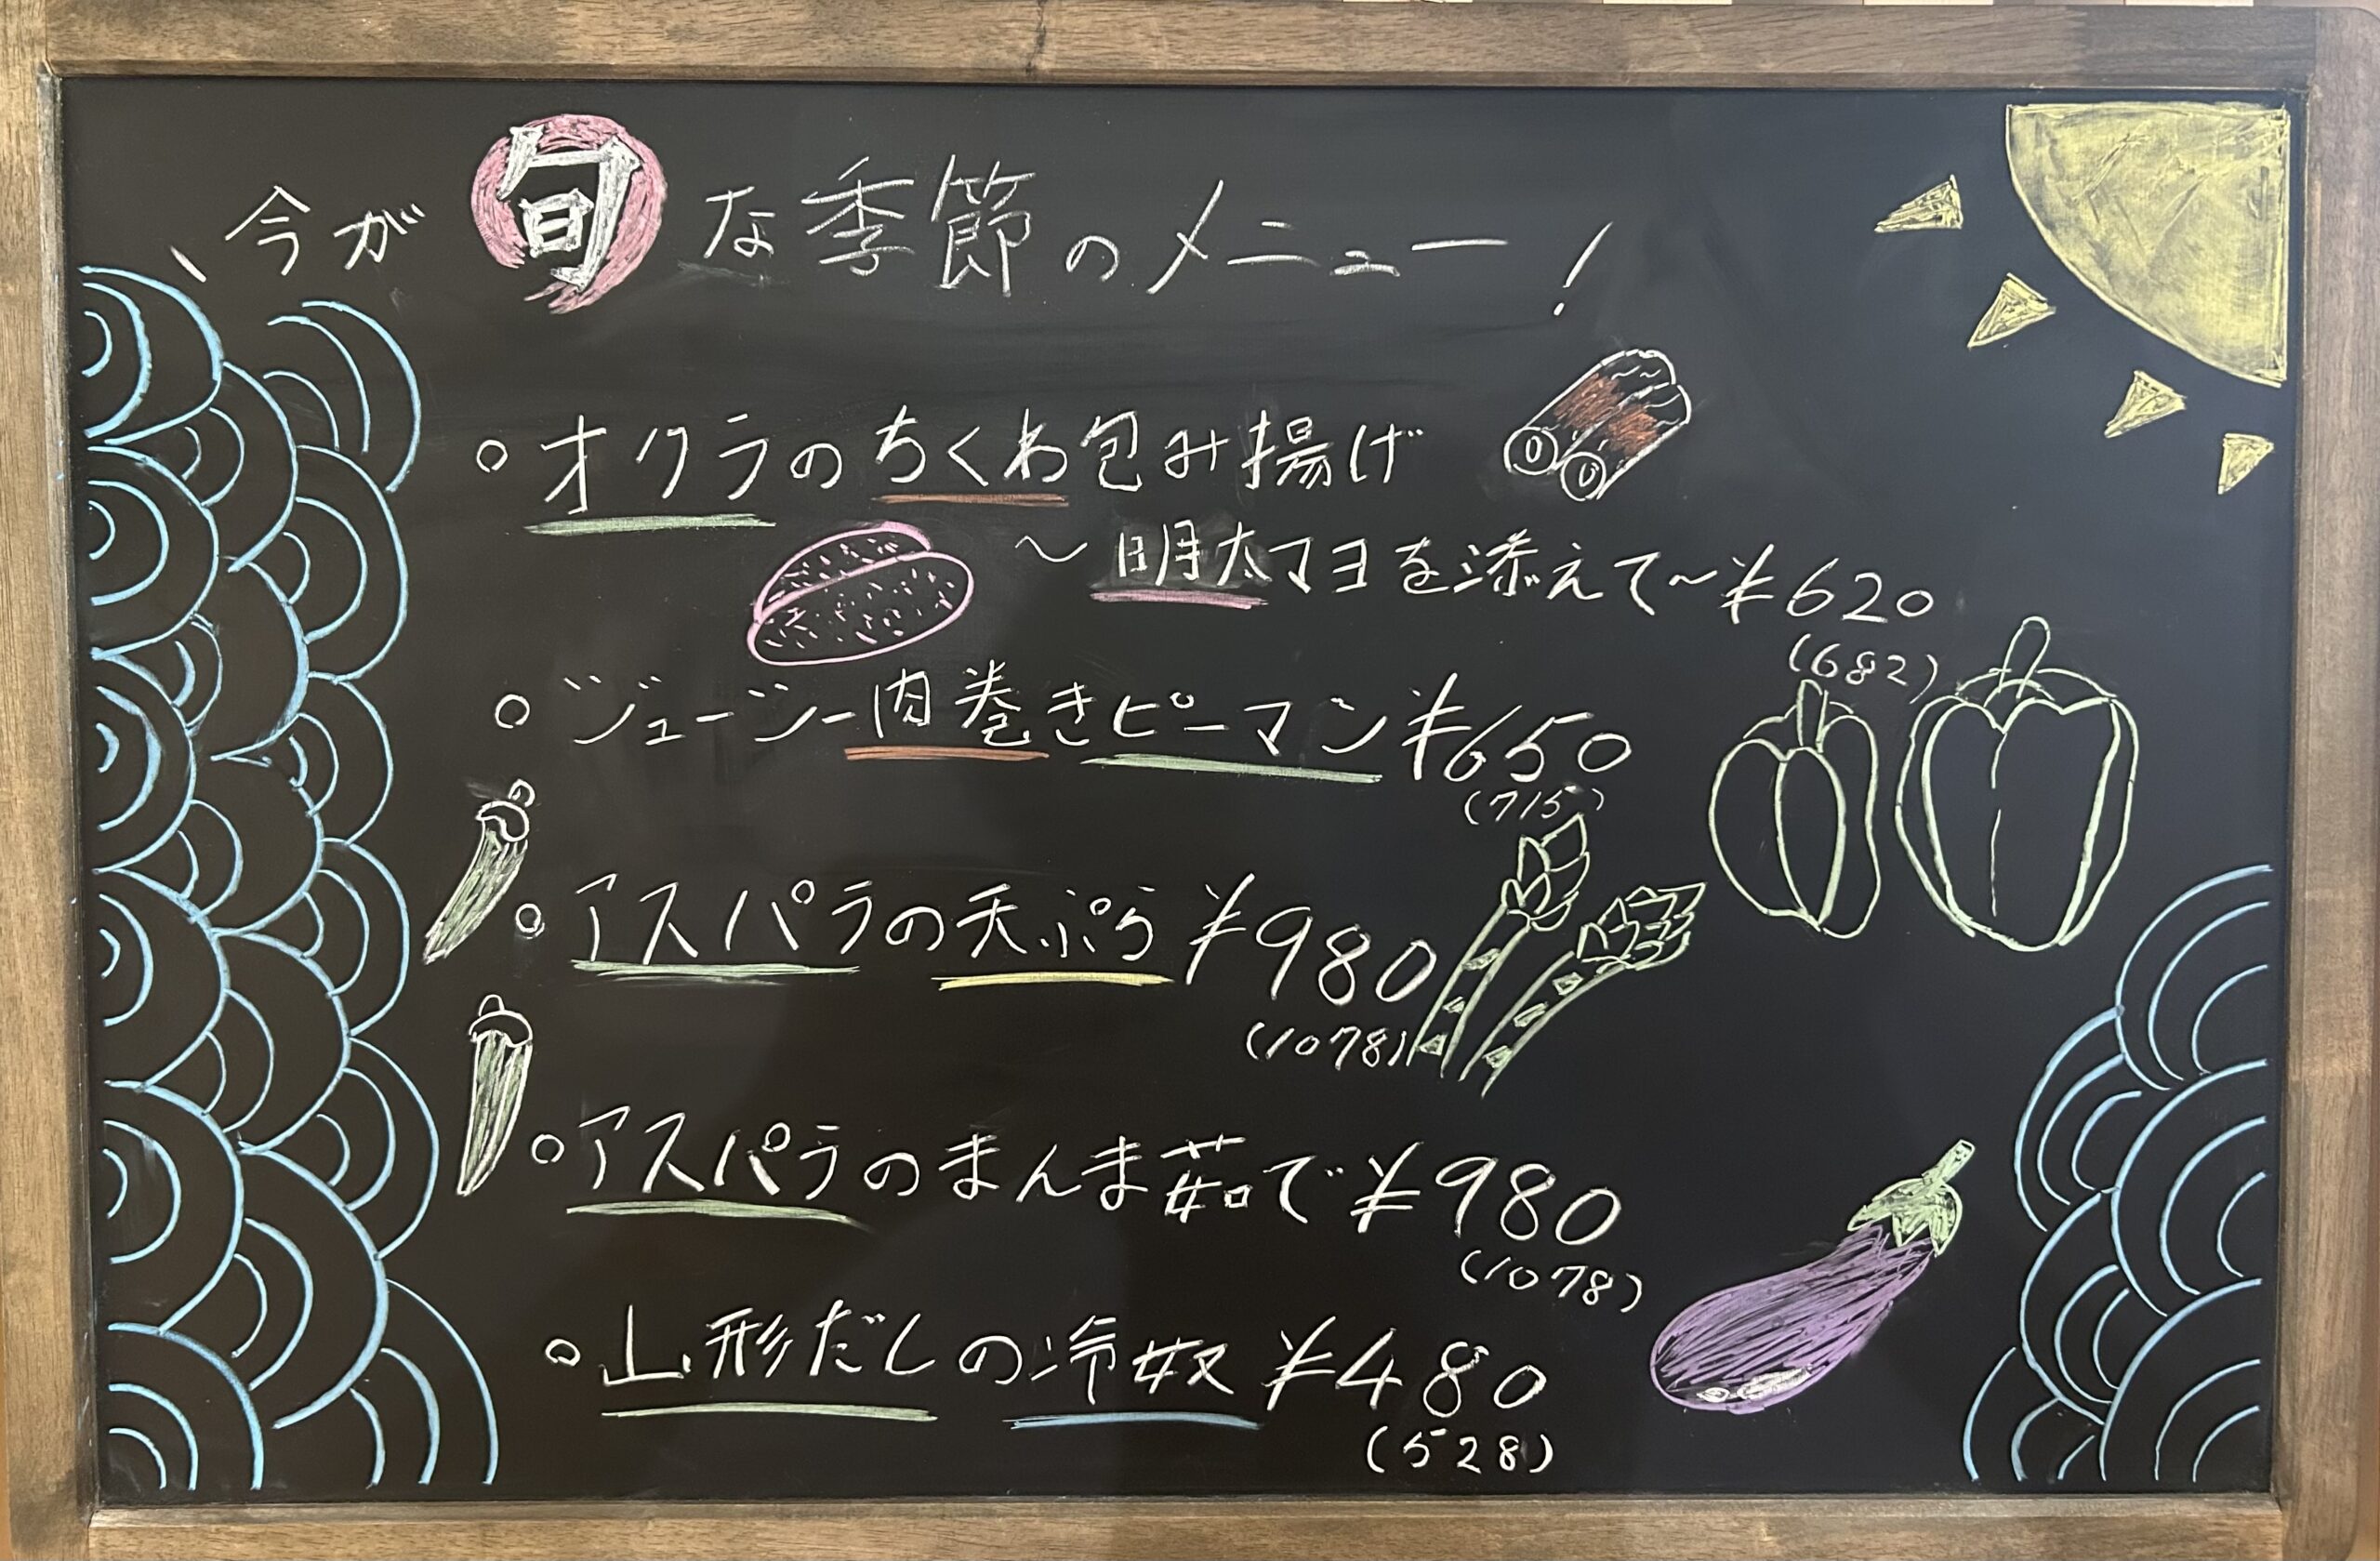 今が旬な季節のメニュー!
○オクラのちくわ包み揚げ
〜明太マヨを添えて〜¥620
(682)
○ジューシー肉巻きピーマン¥650
(715)
○アスパラの天ぷら¥980
(1078)
○アスパラのまんま茹で¥980
(1078)
○山形だしの冷奴¥480
(528)